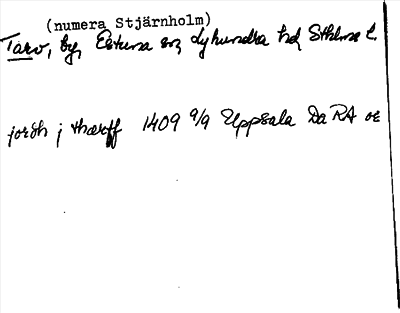 (numera Stjärnholm)
Tarv, by, Estuna sn, Lyhundra hd, Sthlms l.
jordh j tharff 1409 9/9 Uppsala Da RA or